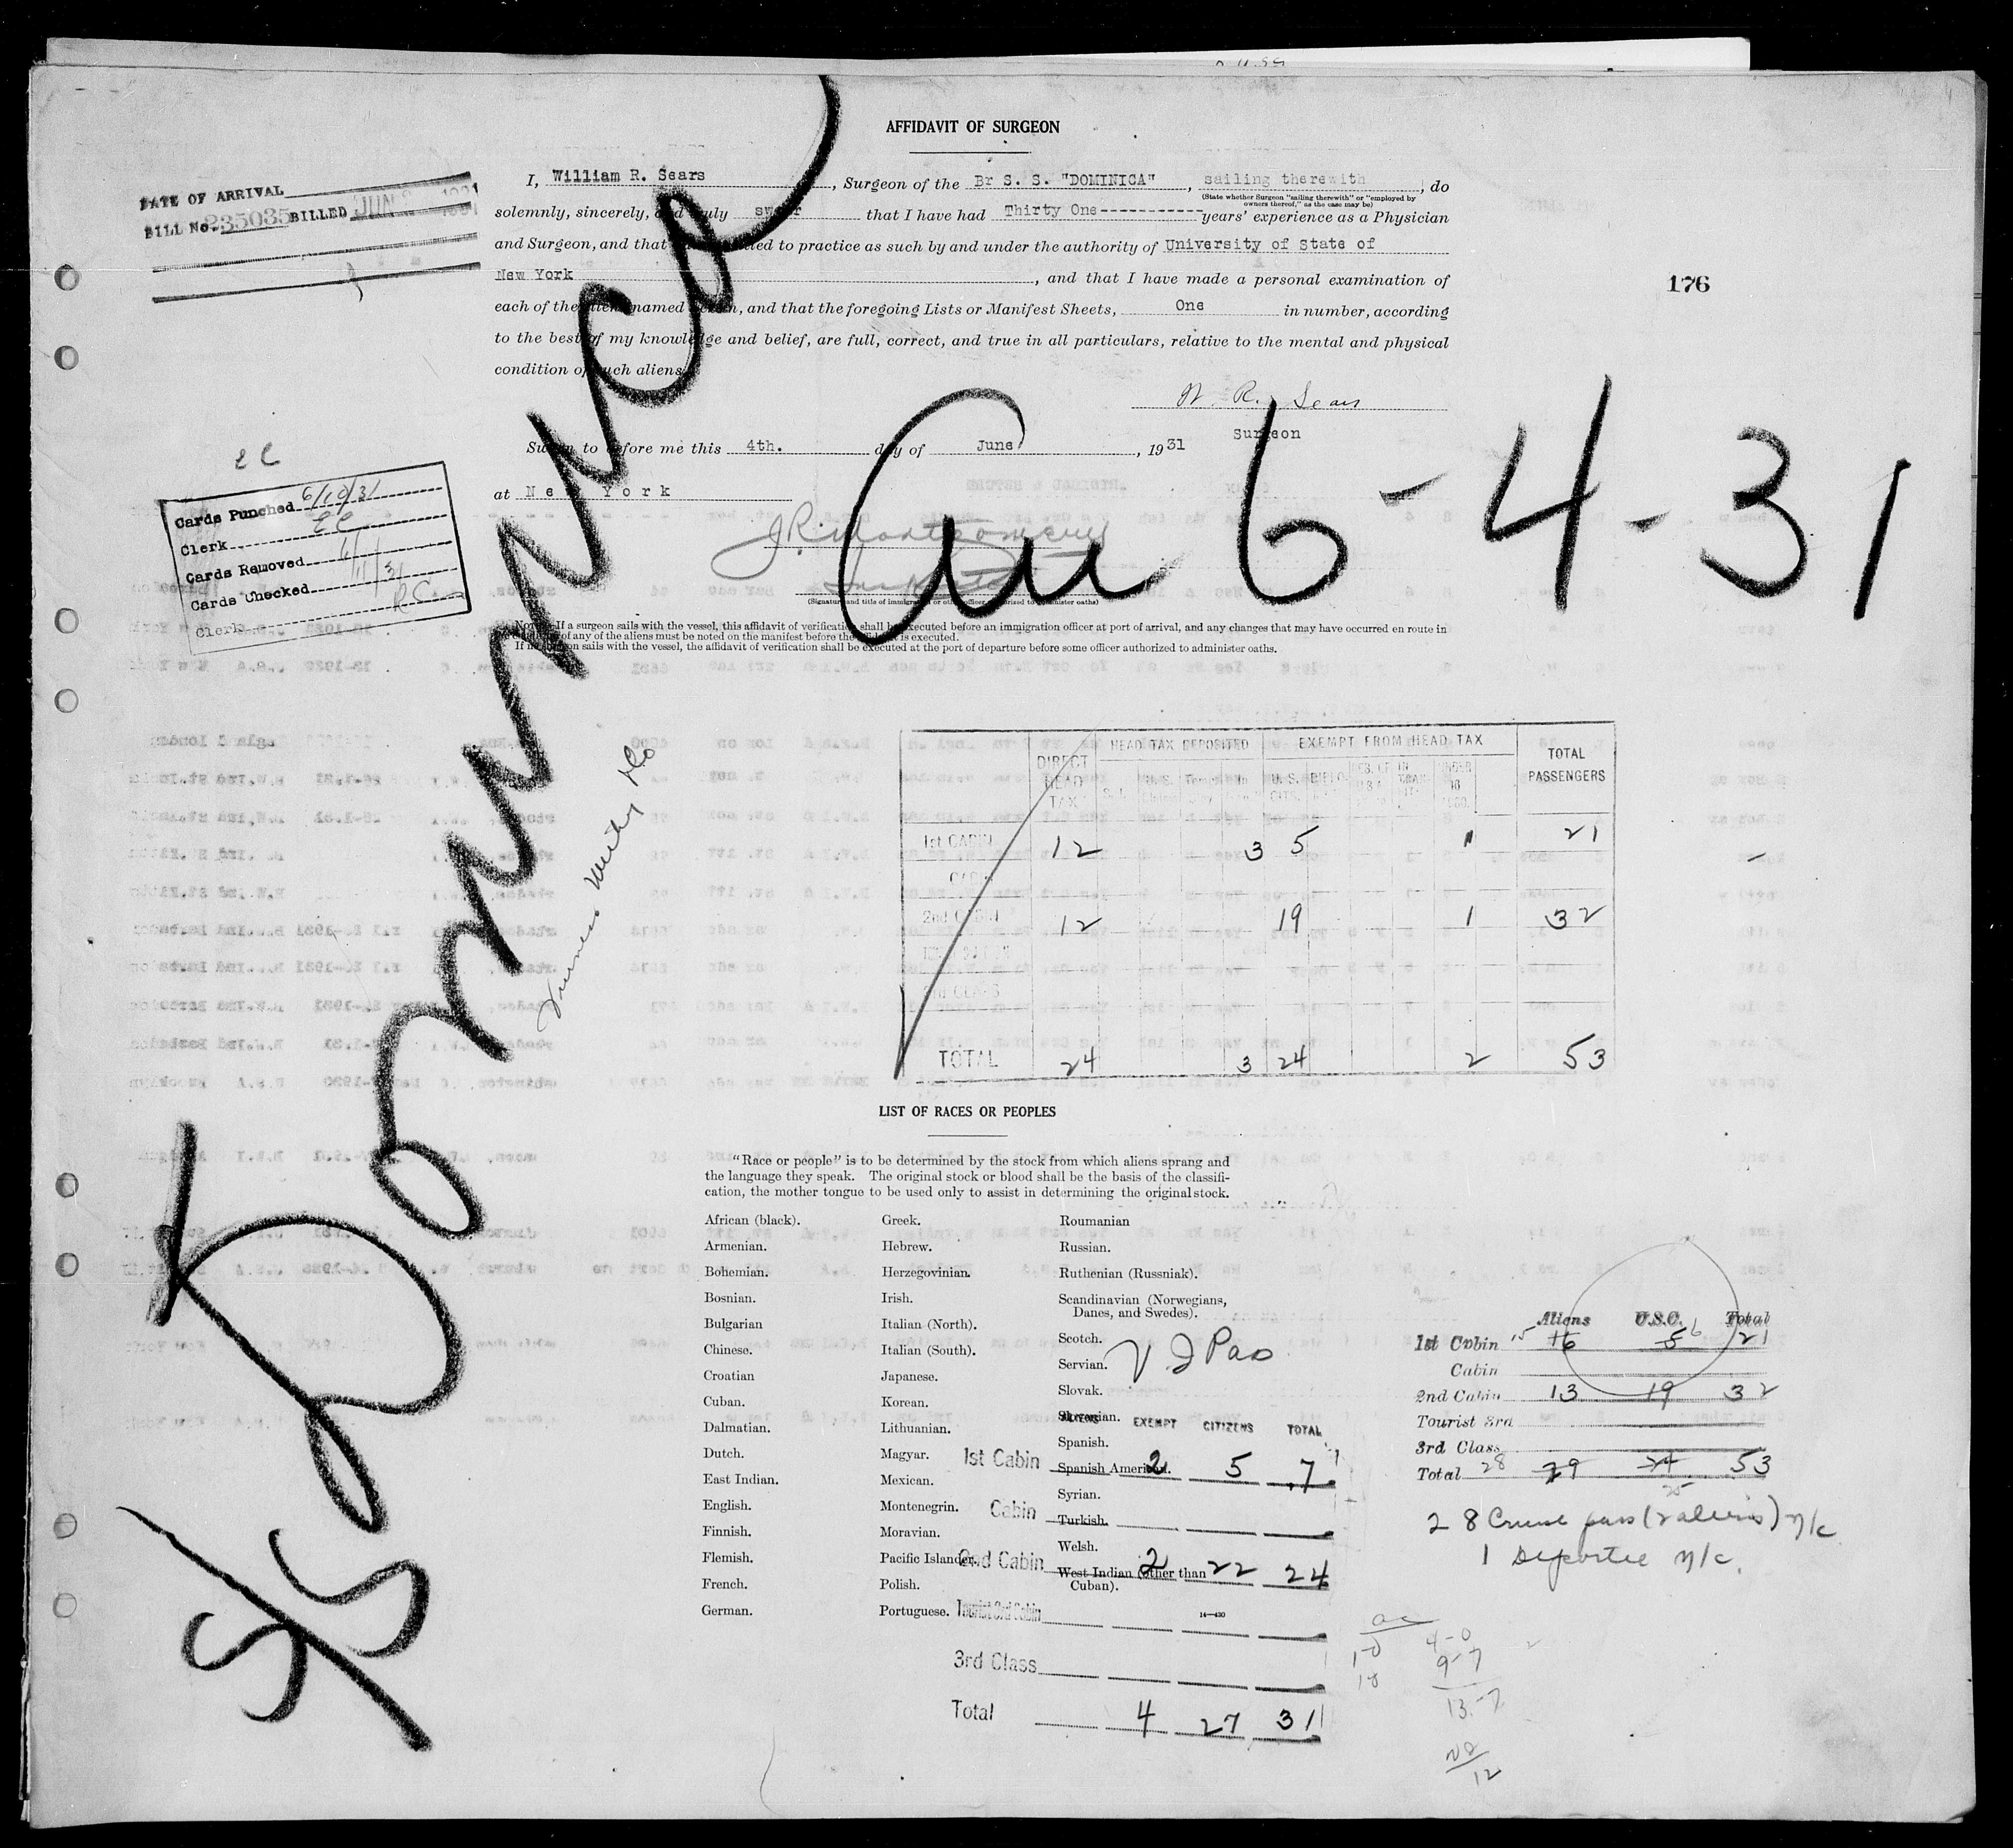 AFFIDAVIT OF SURGEON
DATE OF ARRIVAL
BILL No. 235035 BILLED JUN
I, William R. Sears, Surgeon of the Br S. S. "DOMINICA", sailing therewith, do
(State whether Surgeon "sailing therewith" or "employed by
owners thereof," as the case may be)
solemnly, sincerely, and truly swear that I have had Thirty One----------- years' experience as a Physician
and Surgeon, and that to practice as such by and under the authority of University of State of
New York, and that I have made a personal examination of
each of the aliens named herein, and that the foregoing Lists or Manifest Sheets, One in number, according
to the best of my knowledge and belief, are full, correct, and true in all particulars, relative to the mental and physical
condition of such aliens.
176
W. R. Sears
Surgeon
Sworn to before me this 4th. day of June, 1931
at New York
J R Montgomery
(Signature and title of immigration or other officer authorized to administer oaths)
NOTE.—If a surgeon sails with the vessel, this affidavit of verification shall be executed before an immigration officer at port of arrival, and any changes that may have occurred en route in
of any of the aliens must be noted on the manifest before the affidavit is executed.
If no surgeon sails with the vessel, the affidavit of verification shall be executed at the port of departure before some officer authorized to administer oaths.
EC
Cards Punched 6/10/31
Clerk EC
Cards Removed
Cards Checked 6/11/31
Clerk
S/S Dominica
6-4-31
DIRECT HEAD TAX
HEAD TAX DEPOSITED
EXEMPT FROM HEAD TAX
TOTAL PASSENGERS
U. S. CITS.
UNDER 16
1st CABIN 12 3 5 1 21
2nd CABIN 12 19 1 32
3rd CLASS
TOTAL 24 3 24 2 53
LIST OF RACES OR PEOPLES
"Race or people" is to be determined by the stock from which aliens sprang and
the language they speak. The original stock or blood shall be the basis of the classifi-
cation, the mother tongue to be used only to assist in determining the original stock.
African (black).
Armenian.
Bohemian.
Bosnian.
Bulgarian
Chinese.
Croatian
Cuban.
Dalmatian.
Dutch.
East Indian.
English.
Finnish.
Flemish.
French.
German.
Greek.
Hebrew.
Herzegovinian.
Irish.
Italian (North).
Italian (South).
Japanese.
Korean.
Lithuanian.
Magyar.
Mexican.
Montenegrin.
Moravian.
Pacific Islander.
Polish.
Portuguese.
Roumanian
Russian.
Ruthenian (Russniak).
Scandinavian (Norwegians,
Danes, and Swedes).
Scotch.
Servian.
Slovak.
Slovenian.
Spanish.
Spanish American.
Syrian.
Turkish.
Welsh.
West Indian (other than
Cuban).
14—430
ALIENS EXEMPT CITIZENS TOTAL
1st Cabin 2 5 7
Cabin
2nd Cabin 2 22 24
Tourist 3rd Cabin
3rd Class
Total 4 27 31
Aliens U.S.C. Total
1st Cabin 15 16 5 6 21
Cabin
2nd Cabin 13 19 32
Tourist 3rd
3rd Class
Total 28 29 24 53
25
28 Cruise pass (2 aliens) n/c
1 Deportee n/c.
4-0
9-7
13-7